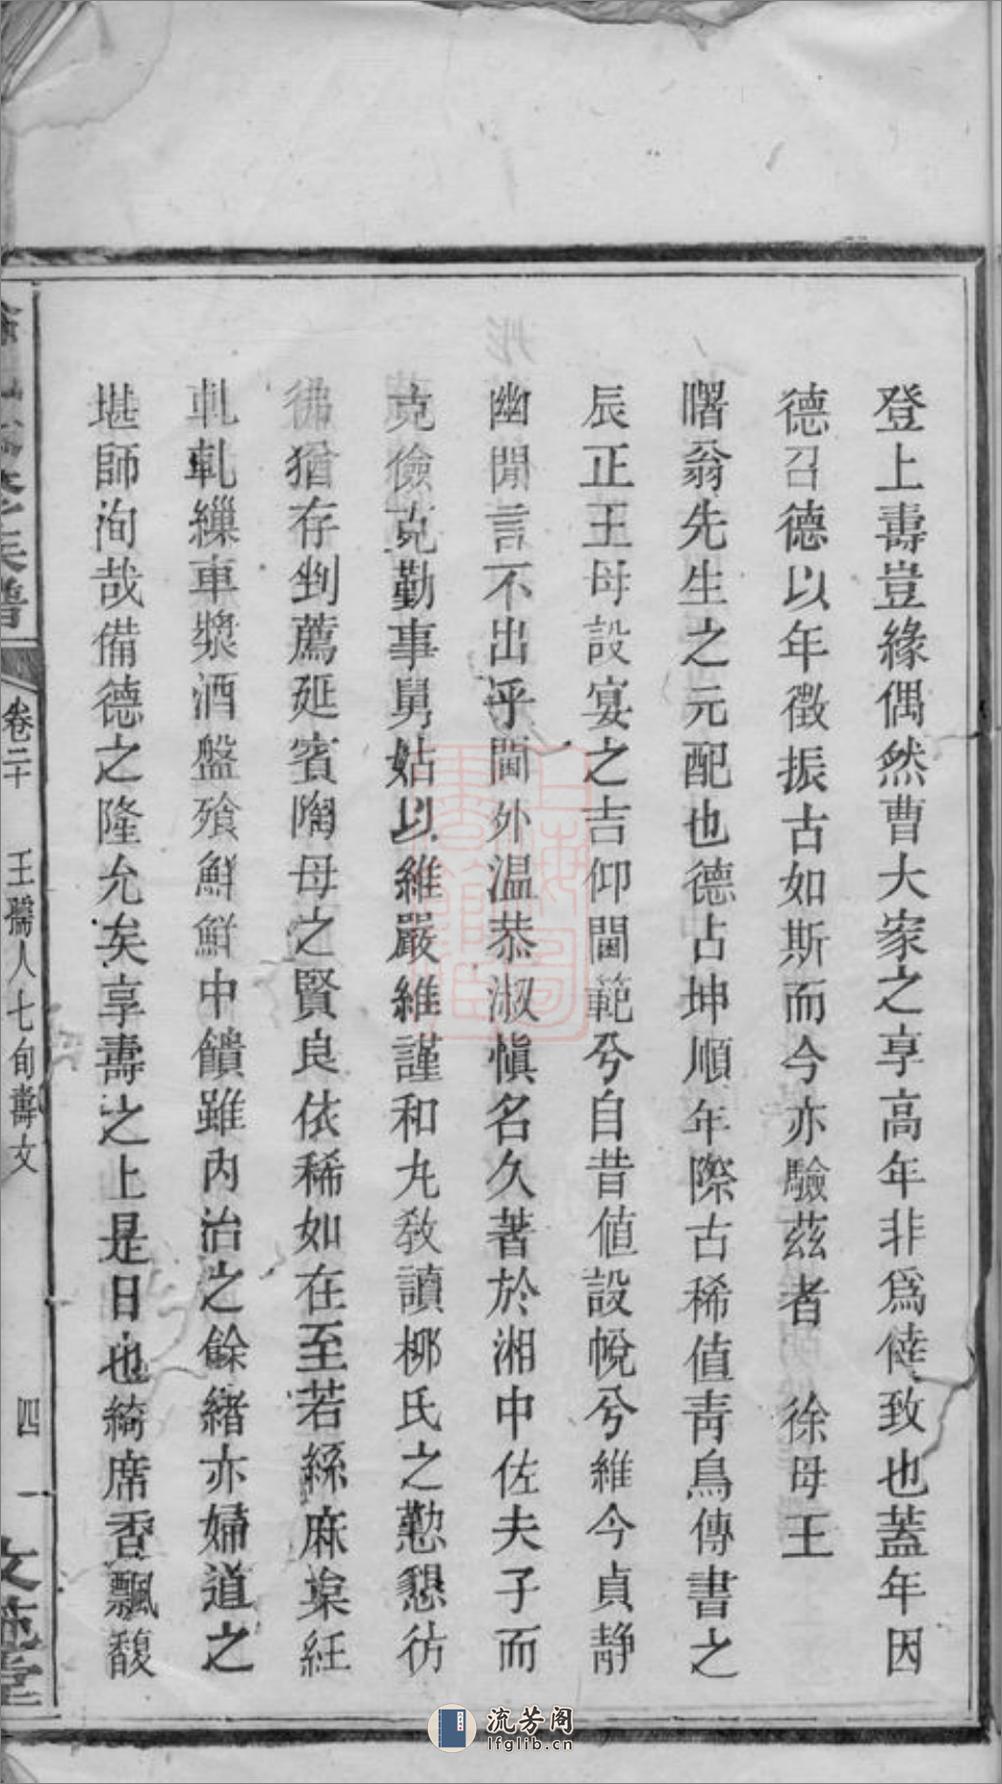 登上壽豈緣偶然曹大家之享高年非爲倖致也蓋年因
德召德以年徵振古如斯而今亦驗茲者　徐母王
曙翁先生之元配也德占坤順年際古稀值青鳥傳書之
辰正王母設宴之吉仰閫範兮自昔值設帨兮維今貞靜
幽閒言不出乎閫外溫恭淑慎名久著於湘中佐夫子而
克儉克勤事舅姑以維嚴維謹和丸教讀柳氏之懃懇彷
彿猶存剉薦延賓陶母之賢良依稀如在至若絲麻枲紝
軋軋繅車漿酒盤飱鮮鮮中饋雖內治之餘緒亦婦道之
堪師洵哉備德之隆允矣享壽之上是日也綺席香飄馥
卷二十
王孺人七旬壽文
四一
流芳阁
lfglib.cn